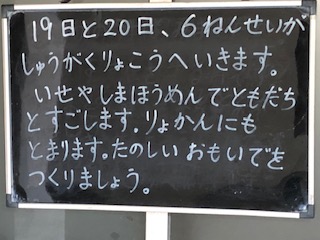 19日と20日、6ねんせいが
しゅうがくりょこうへいきます。
いせやしまほうめんでともだち
とすごします。りょかんにも
とまります。たのしいおもいでを
つくりましょう。